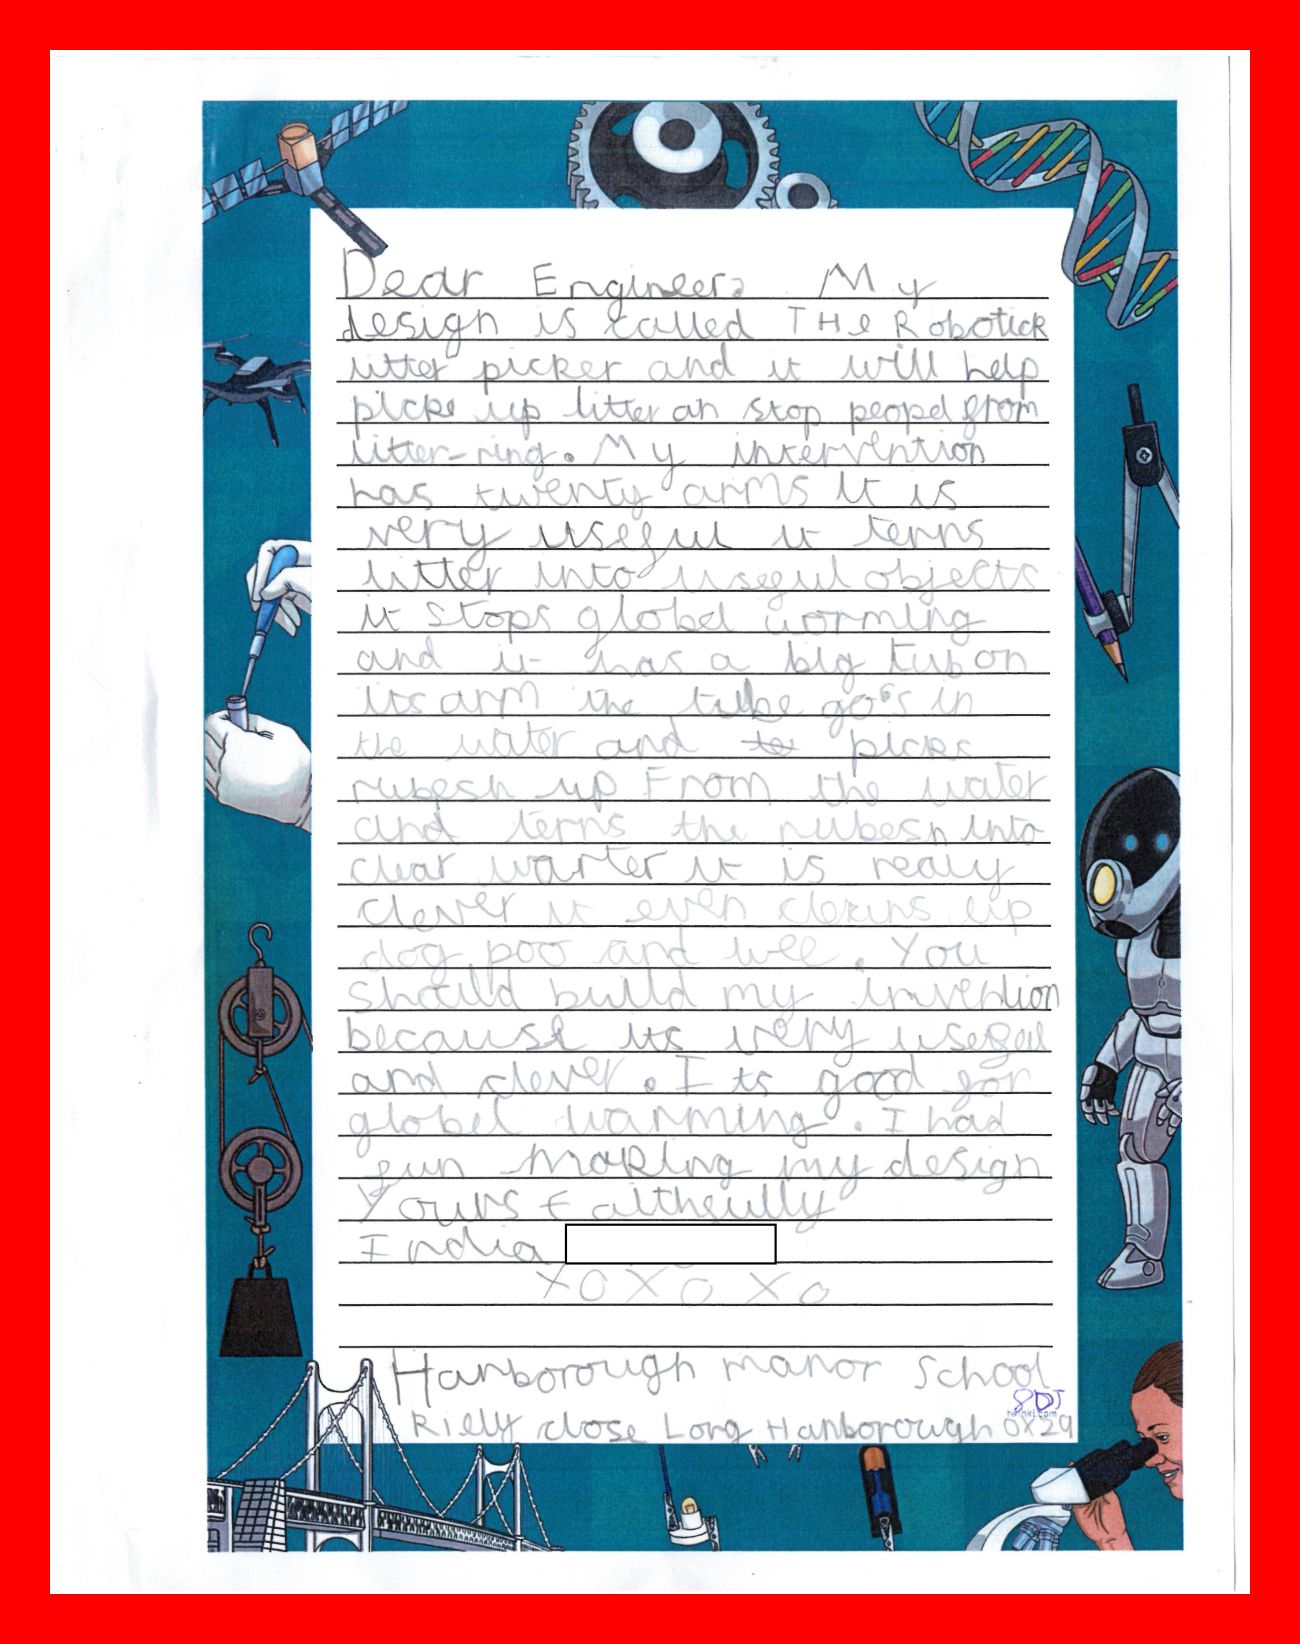 Dear Engineer, My
design is called THe Robotick
litter picker and it will help
picke up litter an stop peopel from
litter-ring. My intervention
has twenty arms it is
very useful it terns
litter into useful objects
it stops globel worming
and it has a big tub on
its arm the tube go's in
the water and to picks
rubesh up From the water
and terns the rubesh into
clear warter it is realy
clever it even cleans up
dog poo and wee. You
should build my invention
because its very usefel
and clever. Its good for
globel warming. I had
fun making my design
Yours Faithfully
India
XOXOXO
Hanborough manor School
8DJ
twinkl.com
Riely close Long Hanborough OX29